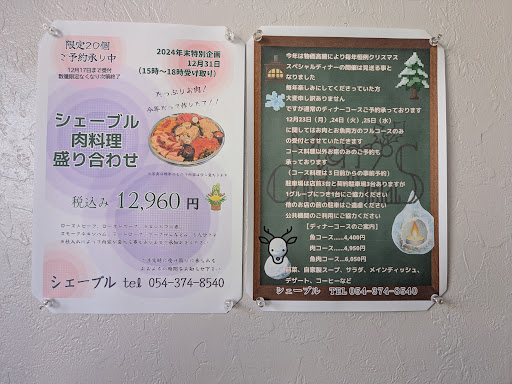 限定20個
ご予約承り中
12月17日まで受付
数量限定なくなり次第終了
2024年末特別企画
12月31日
(15時〜18時受け取り)
たっぷりお肉!
シェーブル
肉料理
盛り合わせ
税込み 12,960円
シェーブル tel 054-374-8540
今年は物価高騰により毎年恒例クリスマス
スペシャルディナーの開催は見送る事と
なりました
毎年楽しみにしてくださっていた方
大変申し訳ありません
ですが通常のディナーコースご予約承っております
12月23日(月),24日(火),25日(水)
に関してはお肉とお魚両方のフルコースのみ
の受付とさせていただきます
コース料理以外お席のみのご予約も
承っております
(コース料理は3日前からの事前予約)
駐車場は店前3台と契約駐車場3台ありますが
1グループにつき1台にご協力ください
他のお店の前の駐車はご遠慮ください
公共機関のご利用にご協力ください
【ディナーコースのご案内】
魚コース……4,400円
肉コース……4,950円
魚肉コース…6,050円
前菜、自家製スープ、サラダ、メインディッシュ、
デザート、コーヒーなど
シェーブル TEL 054-374-8540